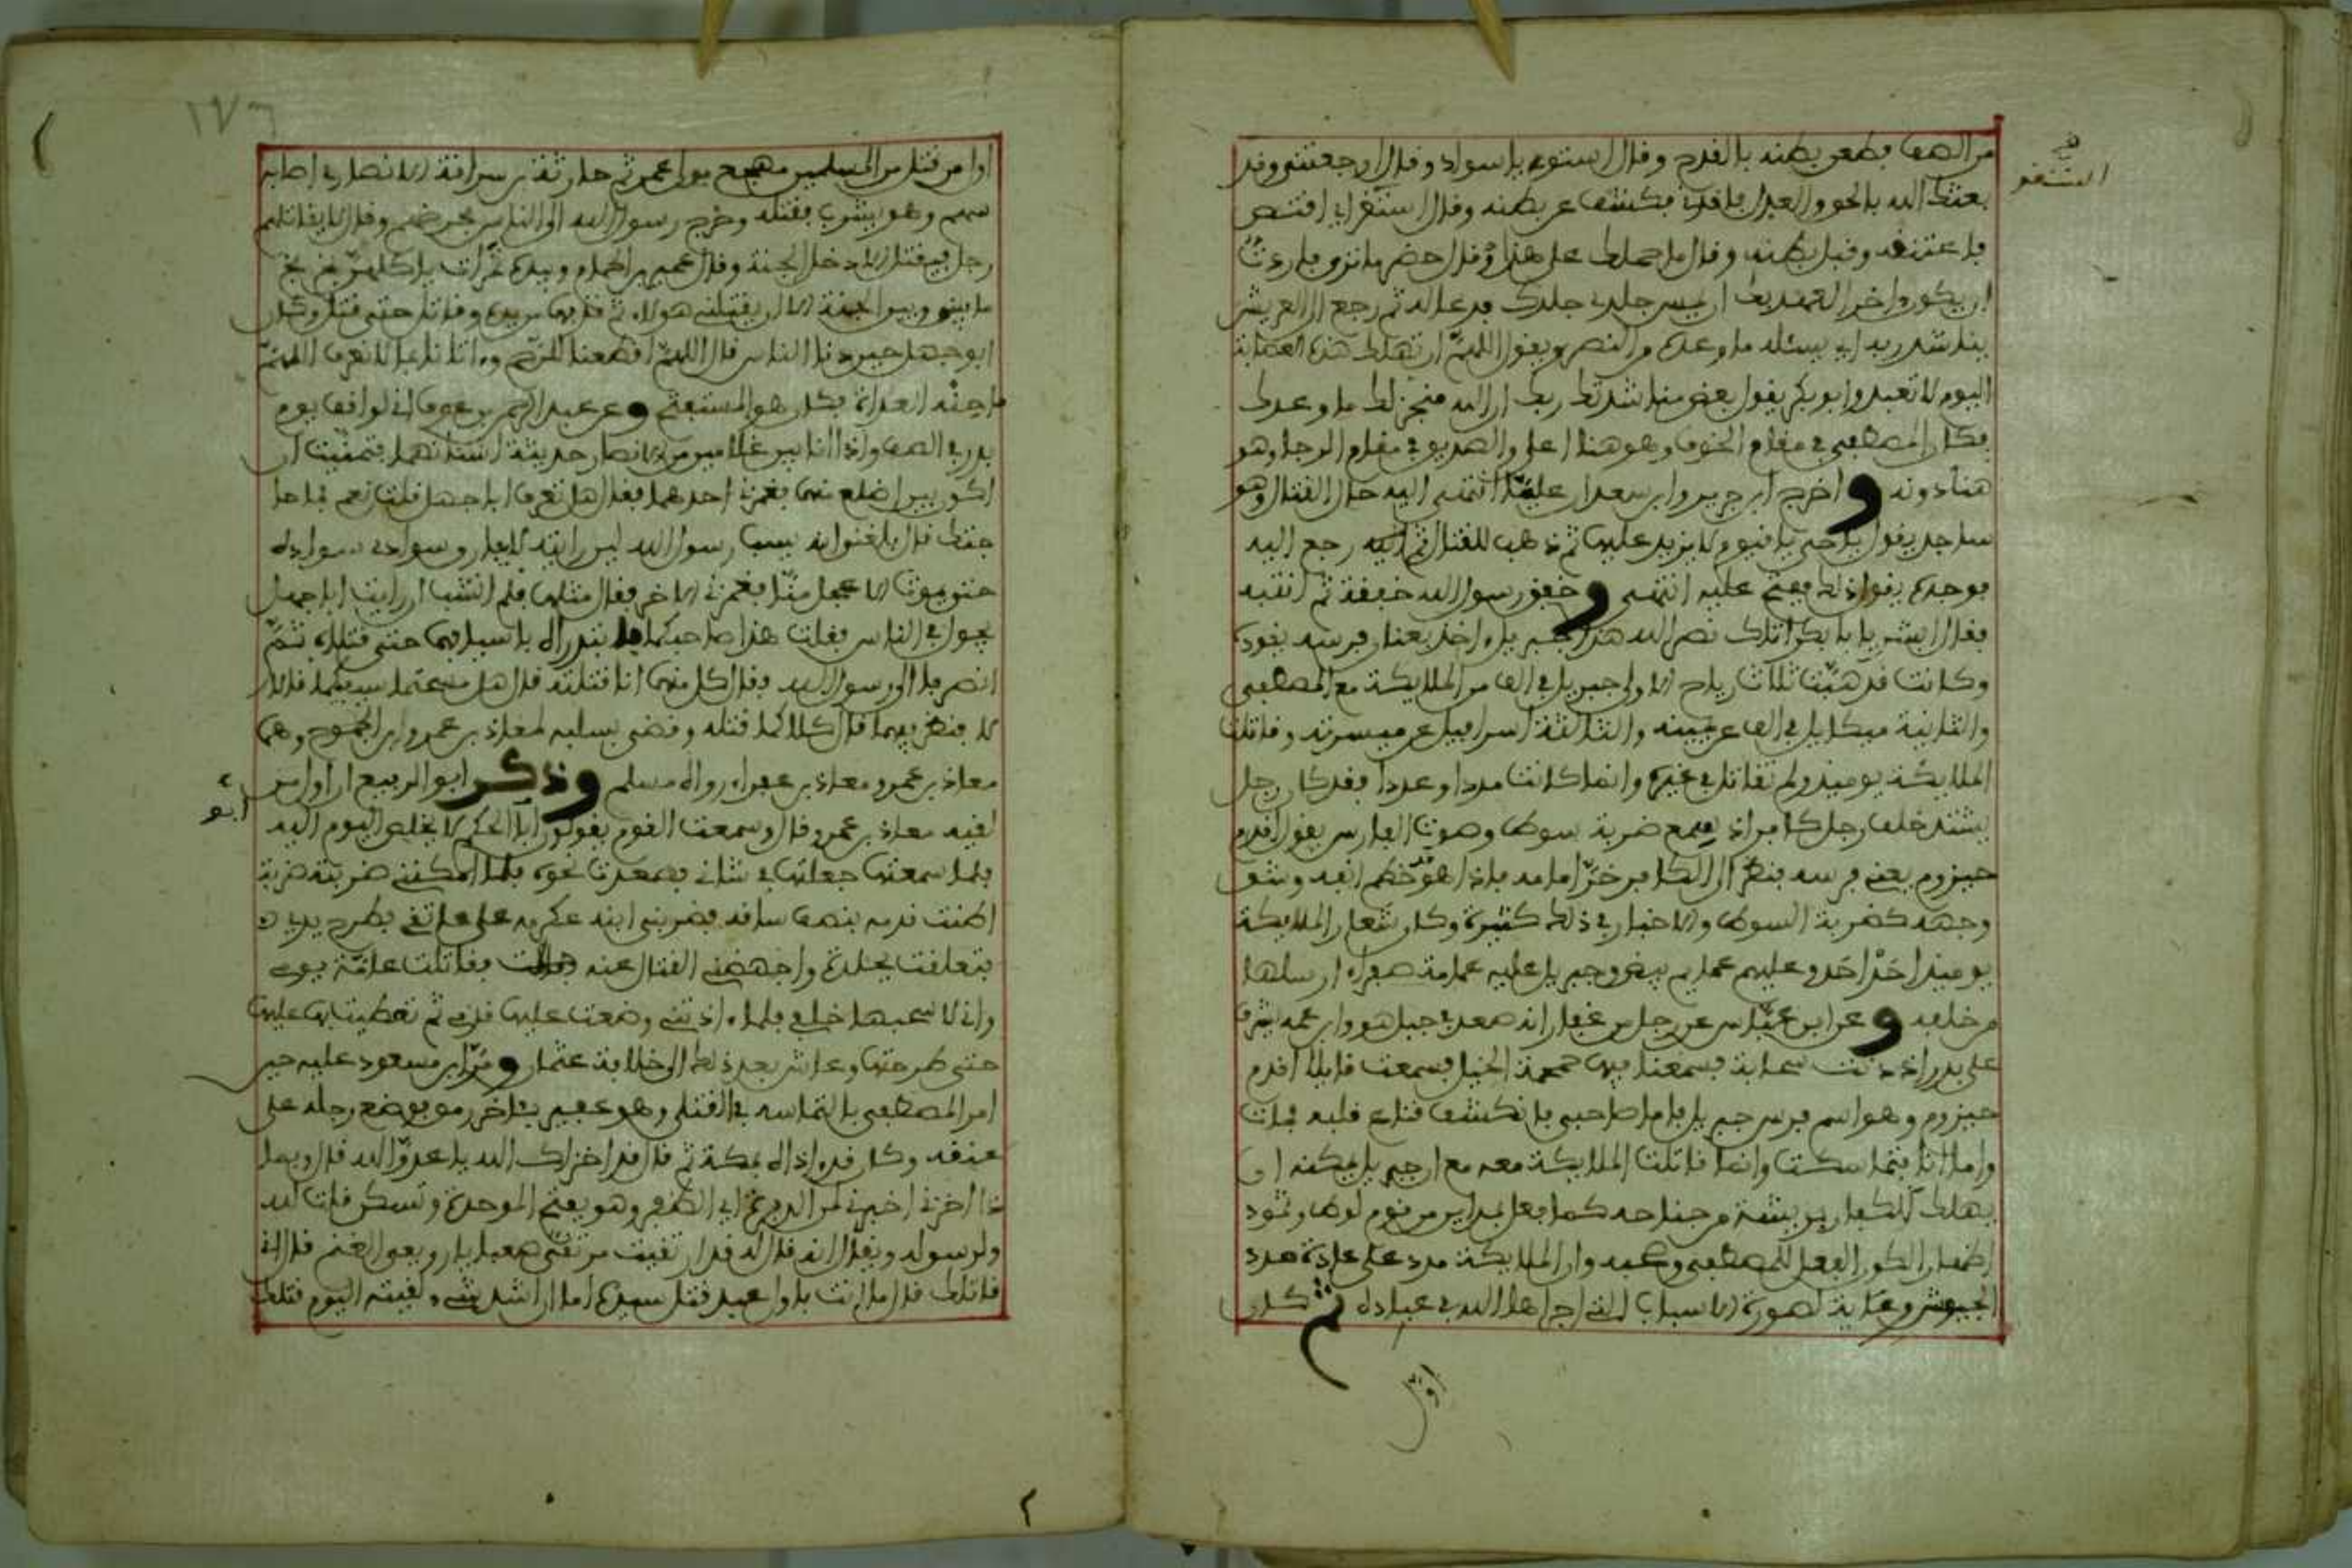 من الصف فطعن بطنه بالقدح وقال استو يا سواد وقال اوجعتني وقد
في
استقد
بعثك الله بالحق والعدل فاقدني فكشف عن بطنه وقال استقد اي اقتص
فاعتنقه وقبل بطنه وقال ما حملك على هذا قال حضر ما ترى فاردت
ان يكون اخر العهد بك ان يمس جلدي جلدك فدعا له ثم رجع الى العريش
يناشد ربه اي يسئله ما وعده من النصر ويقول اللهم ان تهلك هذه العصابة
اليوم لا تعبد وابو بكر يقول بعض مناشدتك ربك ان الله منجز لك ما وعدك
فكان المصطفى في مقام الخوف وهو هنا اعلى والصديق في مقام الرجا وهو
هنا دونه واخرج ابن جرير وابن سعد ان عليا انتهى اليه حال القتال وهو
ساجد يقول يا حي يا قيوم لا يزيد عليها ثم ذهب للقتال ثم رجع اليه
فوجده يقول ذلك ففتح عليه انتهى وخفق رسول الله خفقة ثم انتبه
فقال ابشر يا ابا بكر اتاك نصر الله هذا جبريل ءاخذ بعنان فرسه يقوده
وكانت قد هبت ثلاث رياح الاولى جبريل في الف من الملايكة مع المصطفى
والثانية ميكايل في الف عن يمينه والثالثة اسرافيل عن ميسرته وقاتلت
الملايكة يوميذ ولم تقاتل في غيره وانما كانت مددا وعددا فقد كان رجل
يشتد خلف رجل كافر اذ سمع ضربة سوط وصوت الفارس يقول اقدم
حيزوم يعني فرسه فنظر الى الكافر خر امامه فاذا هو قد خطم انفه وشق
وجهه كضربة السوط والاخبار في ذلك كثيرة وكان شعار الملايكة
يوميذ احد احد وعليهم عمايم بيض وجبريل عليه عمامة صفراء ارسلها
من خلفه وعن ابن عباس عن رجل من غفار انه صعد في جبل هو وابن عمه يشرف
على بدر اذ دنت سحابة فسمعنا فيها حمحمة الخيل فسمعت قايلا اقدم
حيزوم وهو اسم فرس جبريل فاما صاحبي فانكشف قناع قلبه فمات
واما انا فتماسكت وانما قاتلت الملايكة معه مع ان جبريل يمكنه ان
يهلك الكفار بريشة من جناحه كما فعل بمداين من قوم لوط وثمود
اظهارا لكون الفعل للمصطفى وصحبه وان الملايكة مدد على عادة مدد
الجيوش رعاية لصورة الاسباب التي اجراها الله في عباده ثم كان
اول
١٧٦
اول من قتل من المسلمين مهجع مولى عمر ثم حارثة بن سراقة الانصاري اصابه
سهم وهو يشرب فقتله وخرج رسول الله الى الناس يحرضهم وقال لا يقاتلهم
رجل فيقتل الا دخل الجنة وقال عمير بن الحمام وبيده تمرات ياكلهن بخ بخ
ما بيني وبين الجنة الا ان يقتلني هولاء ثم قذفها من يده وقاتل حتى قتل وكان
ابو جهل حين دنا الناس قال اللهم اقطعنا للرحم وءاتانا بما لا نعرف اللهم
فاحنه الغداة فكان هو المستفتح وعن عبد الرحمن بن عوف اني لواقف يوم
بدر في الصف واذا انا بين غلامين من الانصار حديثة اسنانهما فتمنيت ان
اكون بين اضلع منهما فغمزني احدهما فقال هل تعرف ابا جهل قلت نعم فما حا
جتك قال بلغني انه يسب رسول الله لين رايته لا يفارق سوادي سواده
حتى يموت الاعجل منا فغمزني الاخر فقال مثلها فلم انشب ان رايت ابا جهل
يجول في الناس فقلت هذا صاحبكما فابتدراه باسيافهما حتى قتلاه ثم
انصرفا الى رسول الله فقال كل منهما انا قتلته قال هل مسحتما سيفيكما قالا
لا فنظر فيهما قال كلاكما قتله وقضى بسلبه لمعاذ بن عمرو ابن الجموح وهما
معاذ بن عمرو ومعاذ بن عفراء رواه مسلم وذكر ابو الربيع ان اول من
ابو
لقيه معاذ بن عمرو قال وسمعت القوم يقولون ابا الحكم لا يخلص اليوم اليه
فلما سمعتها جعلتها في شاني فصمدت نحوه فلما امكنني ضربته ضربة
اطنت قدمه بنصف ساقه فضربني ابنه عكرمه على عاتقي فطرح يدي
فتعلقت بجلدة واجهضني القتال عنه فقاتلت عامة يومي
واني لاسحبها خلفي فلما ءاذتني وضعت عليها قدمي ثم تمطيت بها عليها
حتى طرحتها وعاش بعد ذلك الى خلافة عثمان ومر ابن مسعود عليه حين
امر المصطفى بالتماسه في القتلى وهو عفير في اخر رمق فوضع رجله على
عنقه وكان قد ءاذاه بمكة ثم قال قد اخزاك الله يا عدو الله قال وبما
ذا اخزني اخبرني لمن الدبرة اي الظفر وهو بفتح الموحدة وتسكن قلت لله
ولرسوله ويقال انه قال له قد ارتقيت مرتقى صعبا يا رويعي الغنم قال اني
قاتلك قال ما انت باول عبد قتل سيده اما ان اشد شيء لقيته اليوم قتلك